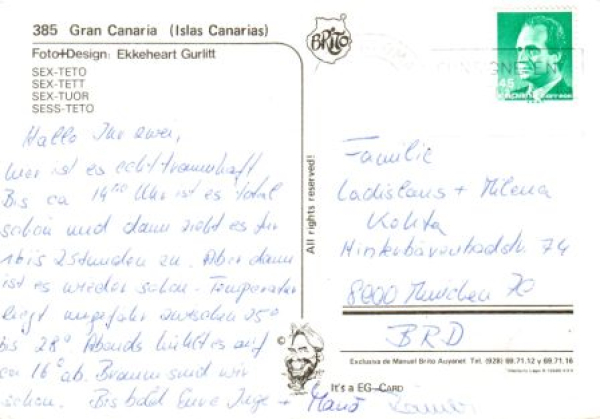 385 Gran Canaria (Islas Canarias)
Foto+Design: Ekkeheart Gurlitt
SEX-TETO
SEX-TETT
SEX-TUOR
SESS-TETO
BRITO
45
Hallo Ihr zwei,
hier ist es echt traumhaft
Bis ca 14⁰⁰ Uhr ist es total
schön und dann zieht es für
1 bis 2 Stunden zu. Aber dann
ist es wieder schön. Temperatur
liegt ungefähr zwischen 25°
bis 28° Abends kühlt es auf
ca 16° ab. Braun sind wir
schon. Bis bald Eure Inge +
All rights reserved!
Familie
Ladislaus + Milena
Kohta
74
8000 München 70
BRD
Exclusiva de Manuel Brito Auyanet Tel. (928) 69.71.12 y 69.71.16
It's a EG-CARD